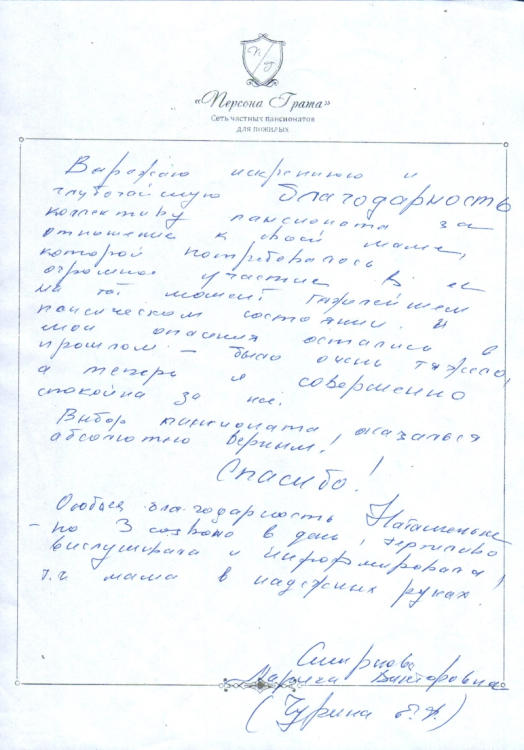 П Г
«Персона Грата»
Сеть частных пансионатов
для пожилых
Выражаю искреннюю и
глубочайшую благодарность
коллективу пансионата за
отношение к своей маме,
которой потребовалось
огромное участие в ее
на тот момент тяжелейшем
психическом состоянии. И
мои опасения остались в
прошлом – было очень тяжело,
а теперь я совершенно
спокойна за неё.
Выбор пансионата оказался
абсолютно верным!
Спасибо!
Особая благодарность Наташеньке
– по 3 созвона в день, терпеливо
выслушивала и информировала!
т.ч мама в надежных руках.
Смирнова
Лариса Викторовна
(Чурина